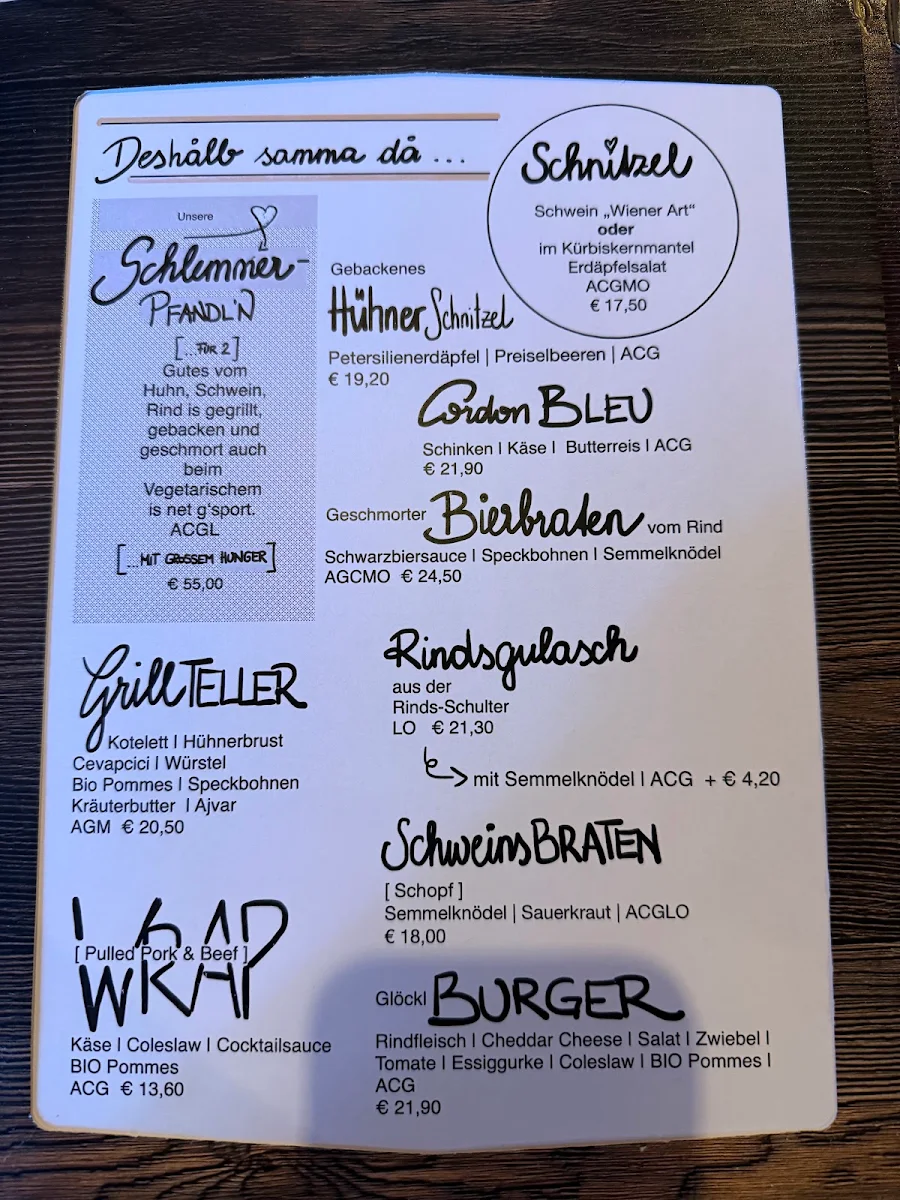 Deshålb samma då ...
Schnitzel
Schwein „Wiener Art“
oder
im Kürbiskernmantel
Erdäpfelsalat
ACGMO
€ 17,50
Unsere
Schlemmer-
PFANDL'N
[...FÜR 2]
Gutes vom
Huhn, Schwein,
Rind is gegrillt,
gebacken und
geschmort auch
beim
Vegetarischem
is net g'sport.
ACGL
[...MIT GROSSEM HUNGER]
€ 55,00
Gebackenes
Hühner Schnitzel
Petersilienerdäpfel | Preiselbeeren | ACG
€ 19,20
Cordon BLEU
Schinken I Käse I Butterreis I ACG
€ 21,90
Geschmorter Bierbraten vom Rind
Schwarzbiersauce I Speckbohnen I Semmelknödel
AGCMO € 24,50
GrillTELLER
Kotelett I Hühnerbrust
Cevapcici I Würstel
Bio Pommes I Speckbohnen
Kräuterbutter I Ajvar
AGM € 20,50
Rindsgulasch
aus der
Rinds-Schulter
LO € 21,30
mit Semmelknödel I ACG + € 4,20
SchweinsBRATEN
[ Schopf ]
Semmelknödel | Sauerkraut | ACGLO
€ 18,00
WRAP
[ Pulled Pork & Beef ]
Käse I Coleslaw I Cocktailsauce
BIO Pommes
ACG € 13,60
Glöckl BURGER
Rindfleisch I Cheddar Cheese I Salat I Zwiebel I
Tomate I Essiggurke I Coleslaw I BIO Pommes I
ACG
€ 21,90